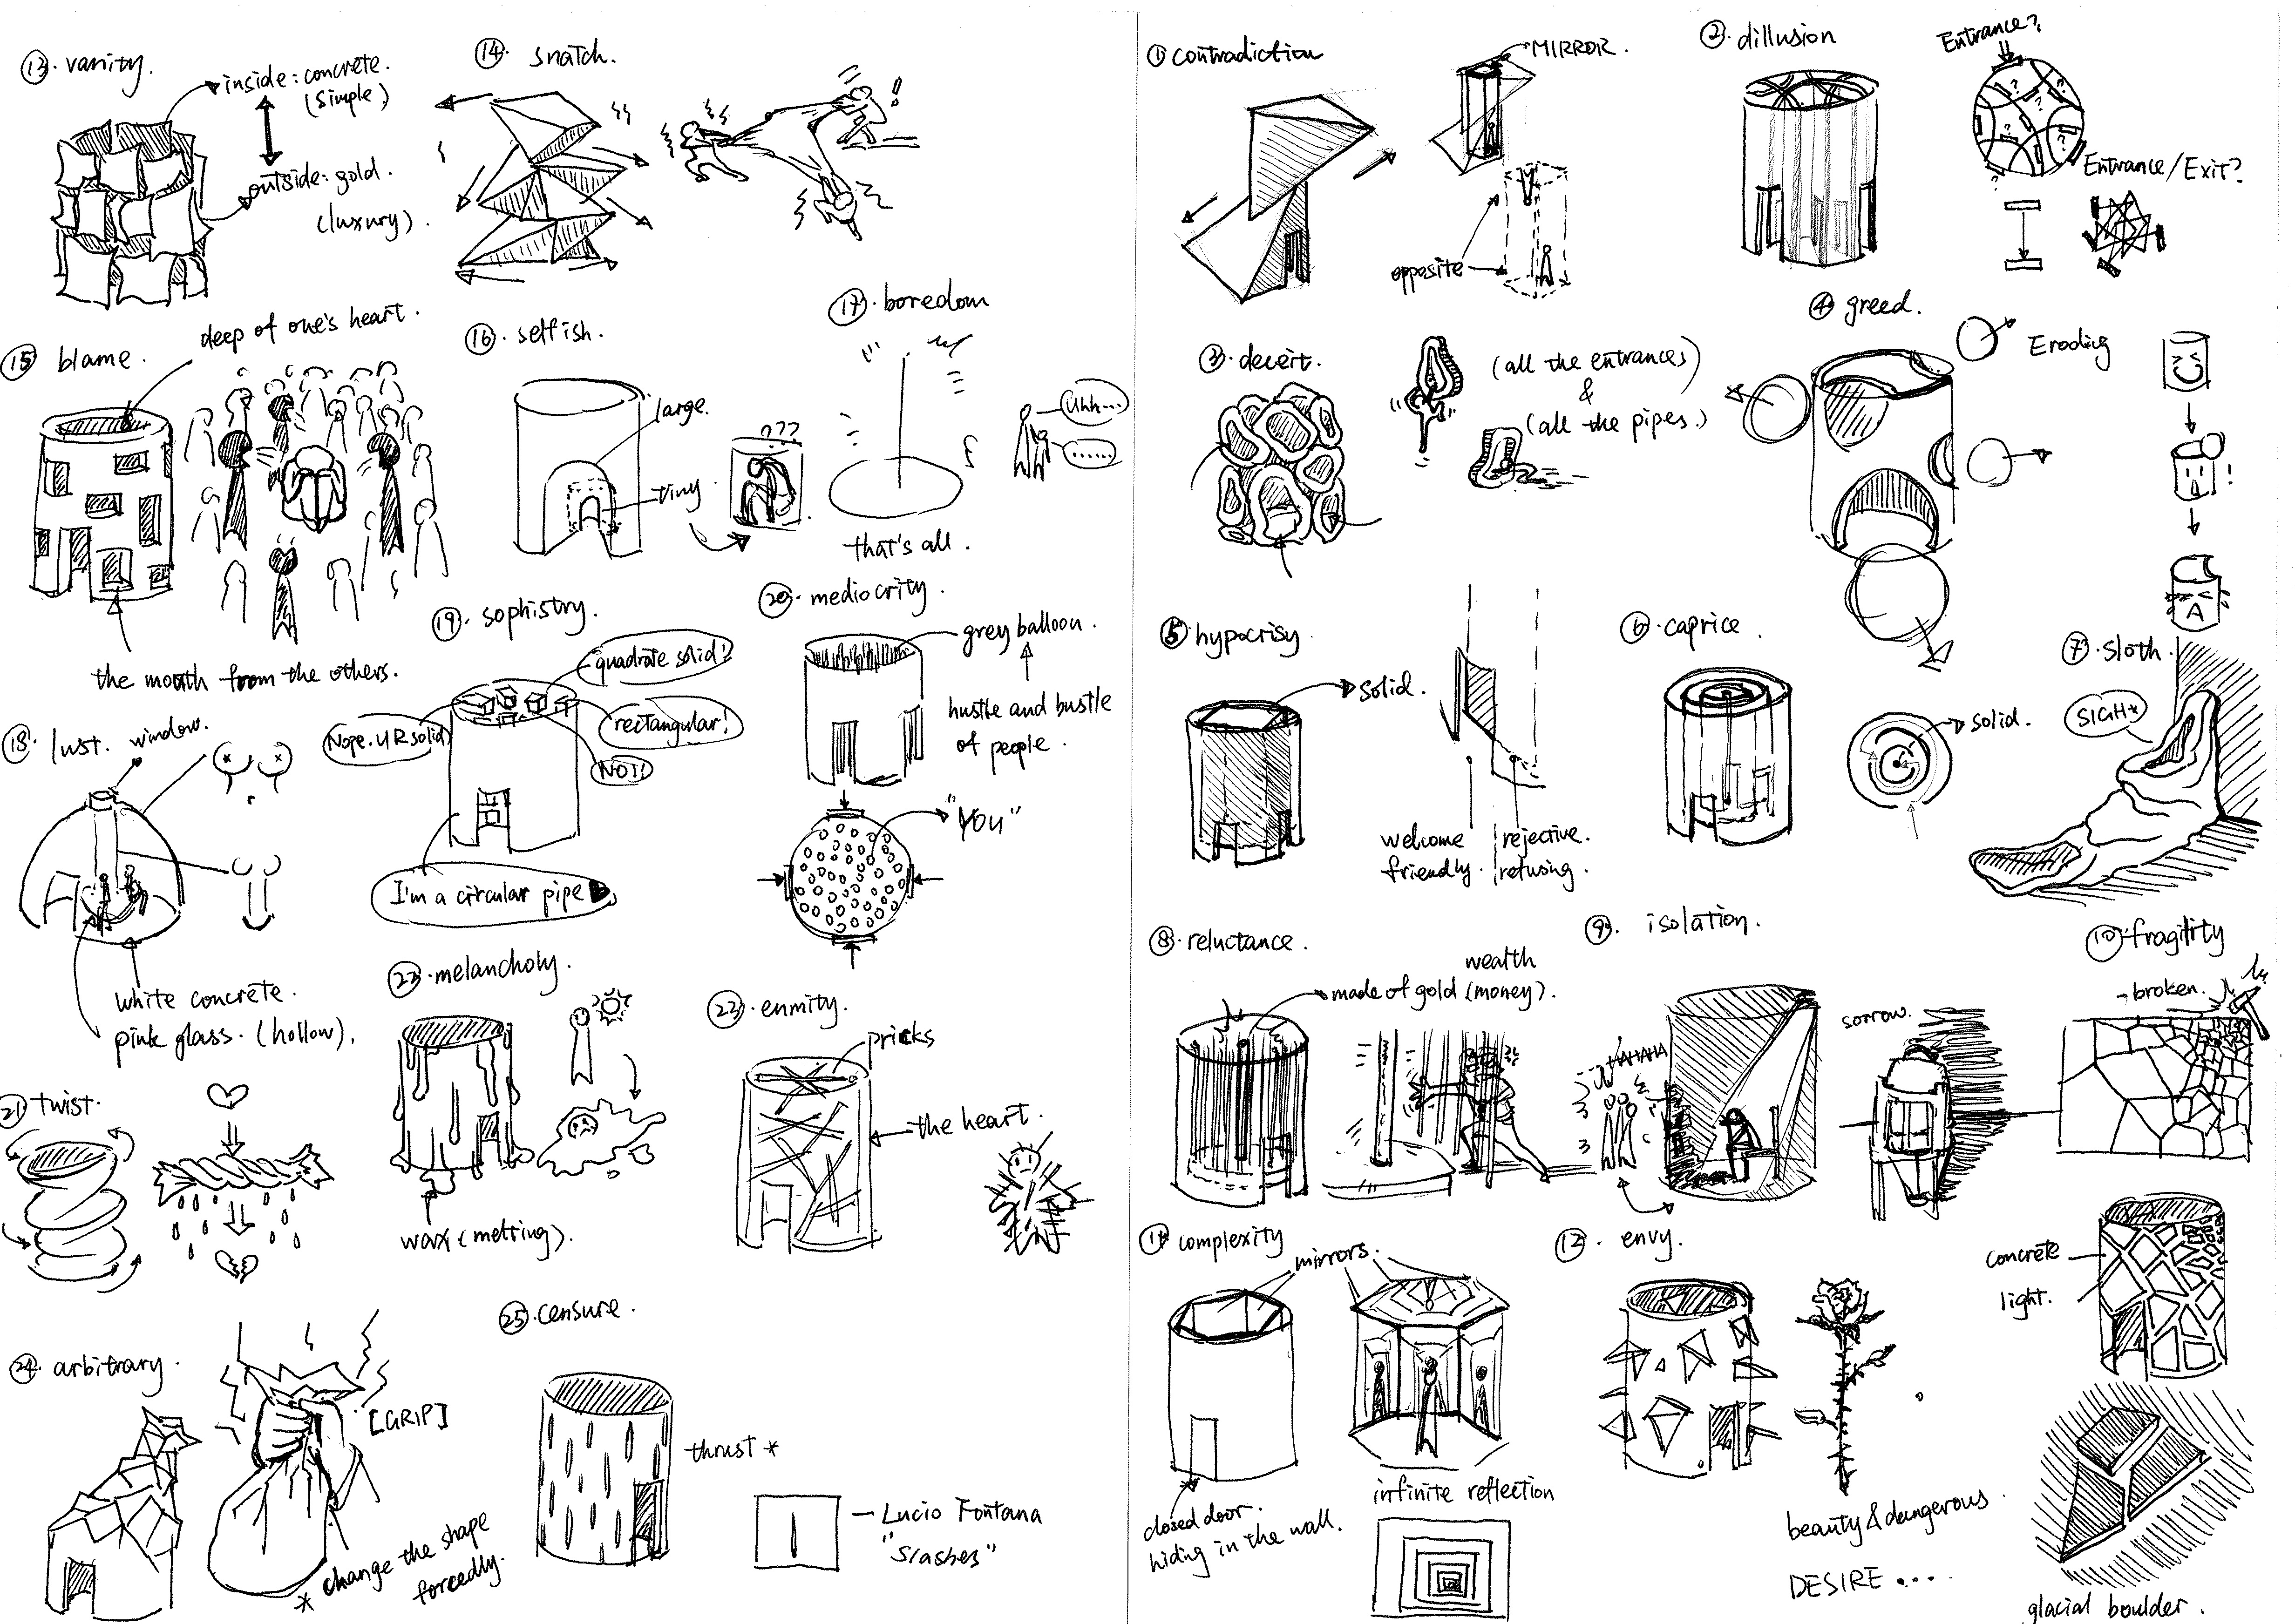 ⑬. vanity.
inside: concrete.
(simple)
outside: gold.
(luxury).
⑭. snatch.
⑮ blame.
deep of one's heart.
the mouth from the others.
⑯. selfish.
large.
tiny.
???
⑰. boredom
uhh...
......
that's all.
⑱. lust.
window.
white concrete.
pink glass. (hollow).
⑲. sophistry.
quadrate solid!
Nope. UR solid
rectangular!
NO!!
I'm a circular pipe
⑳. mediocrity.
grey balloon.
hustle and bustle
of people.
"YOU"
㉑ twist.
㉒. melancholy.
wax (melting).
㉓. enmity.
pricks
the heart.
㉔. arbitrary.
[GRIP]
* change the shape
forcedly.
㉕. censure.
thrust *
Lucio Fontana
"Slashes"
① contradiction
MIRROR.
opposite
②. dillusion
Entrance?
Entrance/Exit?
③. deceit.
(all the entrances)
&
(all the pipes.)
④. greed.
Eroding
⑤ hypocrisy
solid.
welcome
friendly.
rejective.
refusing.
⑥. caprice.
solid.
⑦. sloth.
SIGH*
⑧. reluctance.
wealth
made of gold (money).
⑨. isolation.
HAHAHA
sorrow.
⑩. fragility
broken.
concrete
light.
glacial boulder.
⑪ complexity
mirrors.
closed door.
hiding in the wall.
infinite reflection
⑫. envy.
beauty & dangerous.
DESIRE....